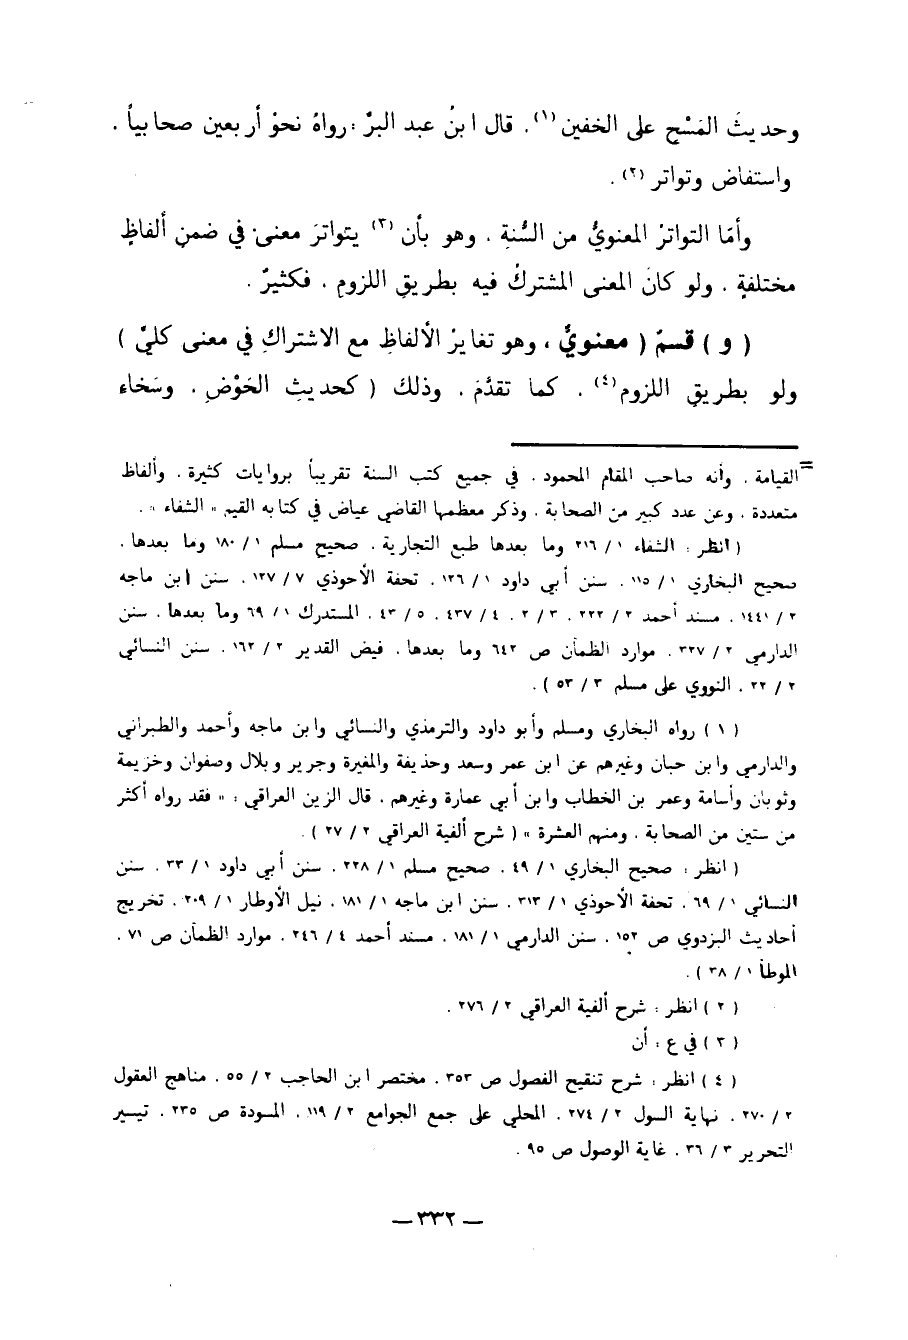 وحديثَ المَسْحِ على الخفين (١) . قال ابنُ عبد البرِّ : رواهُ نحوُ أربعين صحابياً .
واستفاض وتواتر (٢) .
وأمّا التواترُ المعنويُّ من السُّنةِ . وهو بأن (٣) يتواترَ معنىً في ضمنِ ألفاظٍ
مختلفةٍ . ولو كانَ المعنى المشتركُ فيه بطريقِ اللزومِ . فكثيرٌ .
( و ) قسمٌ ( معنويٌّ ، وهو تغايرُ الألفاظِ مع الاشتراكِ في معنى كليٍّ )
ولو بطريقِ اللزوم (٤) . كما تقدَّمَ . وذلكَ ( كحديثِ الحَوْضِ . وسَخاء
= القيامة . وأنه صاحب المقام المحمود . في جميع كتب السنة تقريباً بروايات كثيرة . وألفاظ
متعددة . وعن عدد كبير من الصحابة . وذكر معظمها القاضي عياض في كتابه القيم « الشفاء » .
( انظر : الشفاء ١ / ٢١٦ وما بعدها طبع التجارية . صحيح مسلم ١ / ١٨٠ وما بعدها .
صحيح البخاري ١ / ١١٥ . سنن أبي داود ١ / ١٢٦ . تحفة الأحوذي ٧ / ١٢٧ . سنن ابن ماجه
٢ / ١٤٤١ . مسند أحمد ٢ / ٢٢٢ . ٣ / ٢ . ٤ / ٤٣٧ . ٥ / ٤٣ . المستدرك ١ / ٦٩ وما بعدها . سنن
الدارمي ٢ / ٣٢٧ . موارد الظمآن ص ٦٤٢ وما بعدها . فيض القدير ٢ / ١٦٢ . سنن النسائي
٢ / ٢٢ . النووي على مسلم ٣ / ٥٣ ) .
( ١ ) رواه البخاري ومسلم وأبو داود والترمذي والنسائي وابن ماجه وأحمد والطبراني
والدارمي وابن حبان وغيرهم عن ابن عمر وسعد وحذيفة والمغيرة وجرير وبلال وصفوان وخزيمة
وثوبان وأسامة وعمر بن الخطاب وابن أبي عمارة وغيرهم . قال الزين العراقي : « فقد رواه أكثر
من ستين من الصحابة . ومنهم العشرة » ( شرح ألفية العراقي ٢ / ٢٧ ) .
( انظر : صحيح البخاري ١ / ٤٩ . صحيح مسلم ١ / ٢٢٨ . سنن أبي داود ١ / ٣٣ . سنن
النسائي ١ / ٦٩ . تحفة الأحوذي ١ / ٣١٣ . سنن ابن ماجه ١ / ١٨١ . نيل الأوطار ١ / ٢٠٩ . تخريج
أحاديث البزدوي ص ١٥٢ . سنن الدارمي ١ / ١٨١ . مسند أحمد ٤ / ٢٤٦ . موارد الظمآن ص ٧١ .
الموطأ ١ / ٣٨ ) .
( ٢ ) انظر : شرح ألفية العراقي ٢ / ٢٧٦ .
( ٣ ) في ع : أن
( ٤ ) انظر : شرح تنقيح الفصول ص ٣٥٣ . مختصر ابن الحاجب ٢ / ٥٥ . مناهج العقول
٢ / ٢٧٠ . نهاية السول ٢ / ٢٧٤ . المحلي على جمع الجوامع ٢ / ١١٩ . المسودة ص ٢٣٥ . تيسير
التحرير ٣ / ٣٦ . غاية الوصول ص ٩٥ .
— ٣٣٢ —